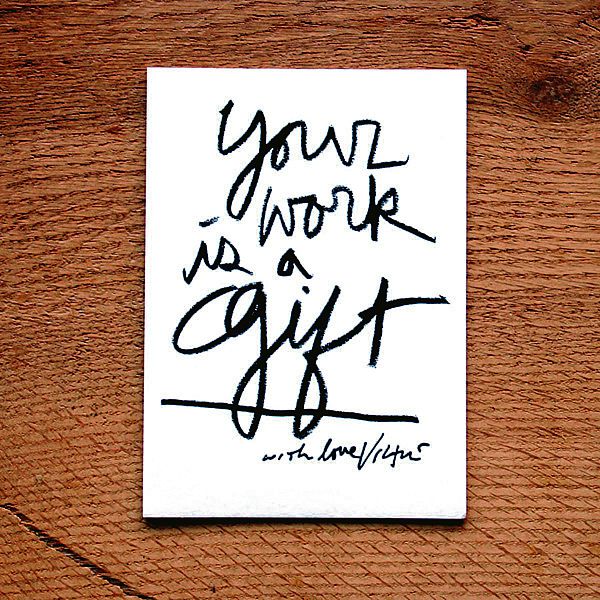 your
work
is a
gift
with love